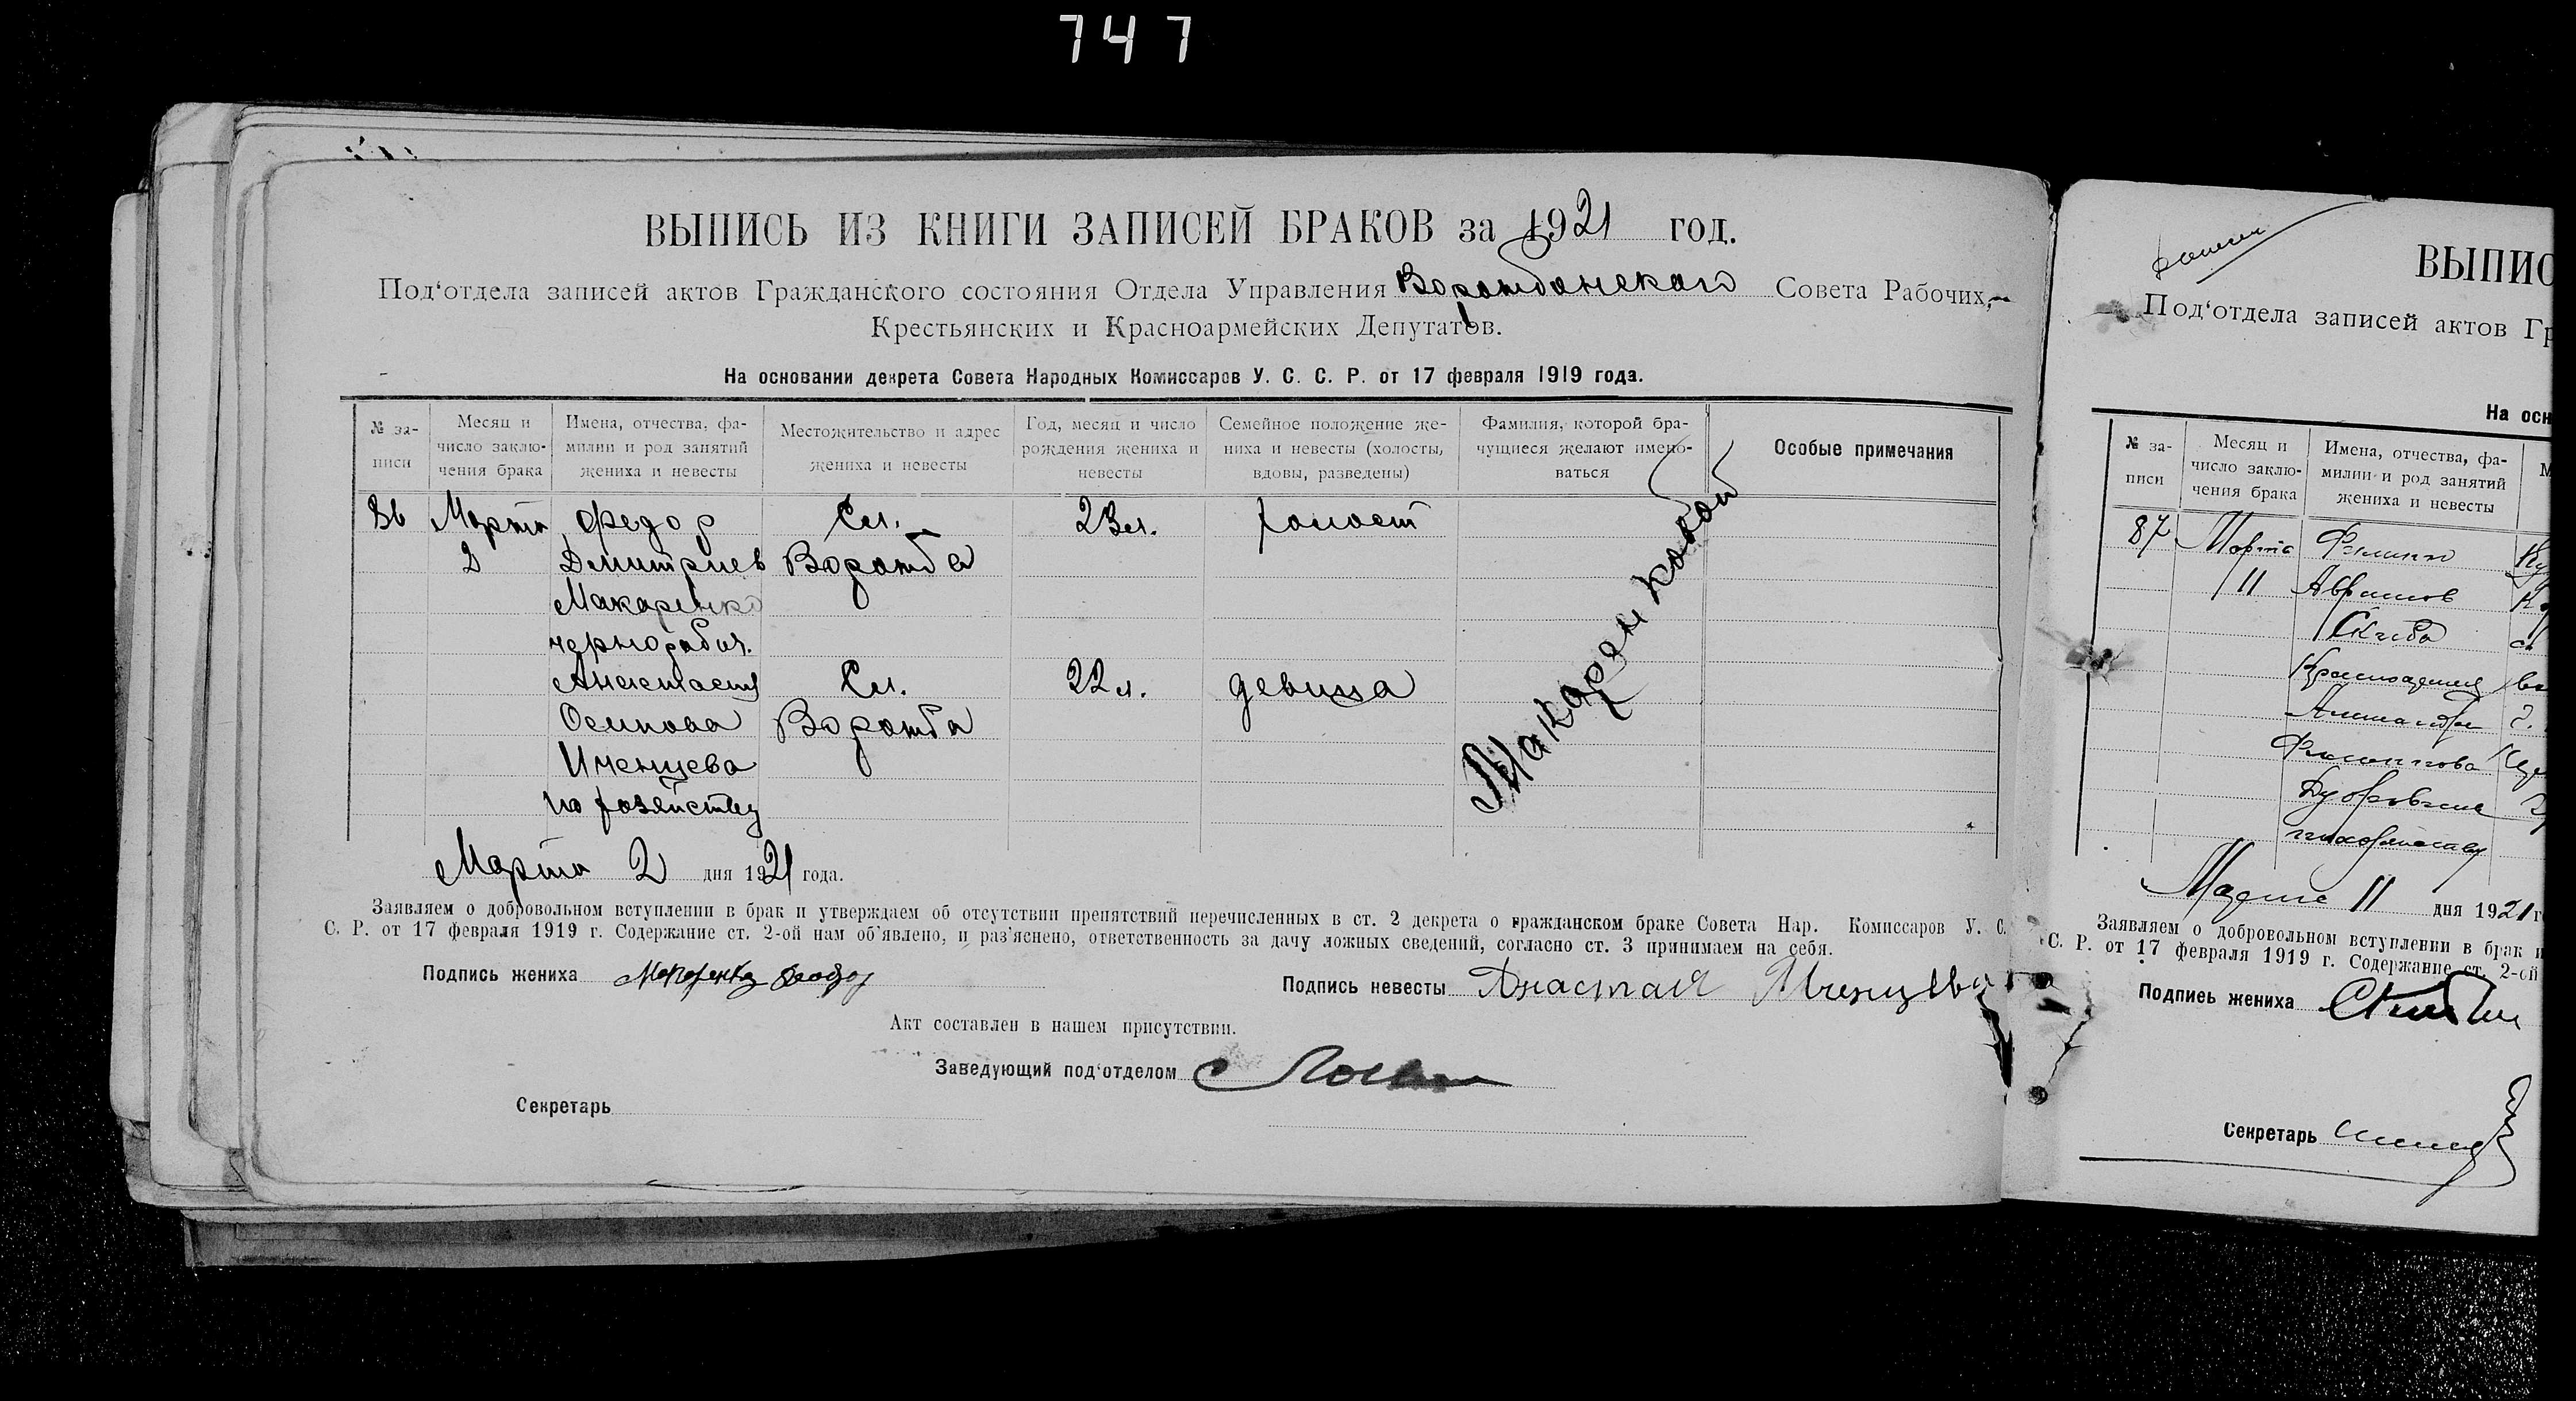 747
ВЫПИСЬ ИЗ КНИГИ ЗАПИСЕЙ БРАКОВ за 1921 год.
Под‘отдела записей актов Гражданского состояния Отдела Управления Ворожбянского Совета Рабочих,
Крестьянских и Красноармейских Депутатов.
На основании декрета Совета Народных Комиссаров У. С. С. Р. от 17 февраля 1919 года.
№ за-
писи
Месяц и
число заклю-
чения брака
Имена, отчества, фа-
милии и род занятий
жениха и невесты
Местожительство и адрес
жениха и невесты
Год, месяц и число
рождения жениха и
невесты
Семейное положение же-
ниха и невесты (холосты,
вдовы, разведены)
Фамилия, которой бра-
чущиеся желают имено-
ваться
Особые примечания
86 Марта Федор Сл. 23 л. холост
2 Дмитриев Ворожба
Макаренко
чернорабоч.
Анастасия Сл. 22 л. девица
Осипова Ворожба
Иченцева
по хозяйству
Макаренковой
Марта 2 дня 1921 года.
Заявляем о добровольном вступлении в брак и утверждаем об отсутствии препятствий перечисленных в ст. 2 декрета о гражданском браке Совета Нар. Комиссаров У. С.
С. Р. от 17 февраля 1919 г. Содержание ст. 2-ой нам об‘явлено, и раз‘яснено, ответственность за дачу ложных сведений, согласно ст. 3 принимаем на себя.
Подпись жениха Макаренко Федор
Подпись невесты Анастасия
Акт составлен в нашем присутствии.
Заведующий под‘отделом
Секретарь
ВЫПИС
Под‘отдела записей актов Гр
На осн
№ за-
писи
Месяц и
число заклю-
чения брака
Имена, отчества, фа-
милии и род занятий
жениха и невесты
М
87 Марта
11
Скиба
Марта 11 дня 1921 г
Заявляем о добровольном вступлении в брак и
С. Р. от 17 февраля 1919 г. Содержание ст. 2-ой
Подпись жениха
Секретарь